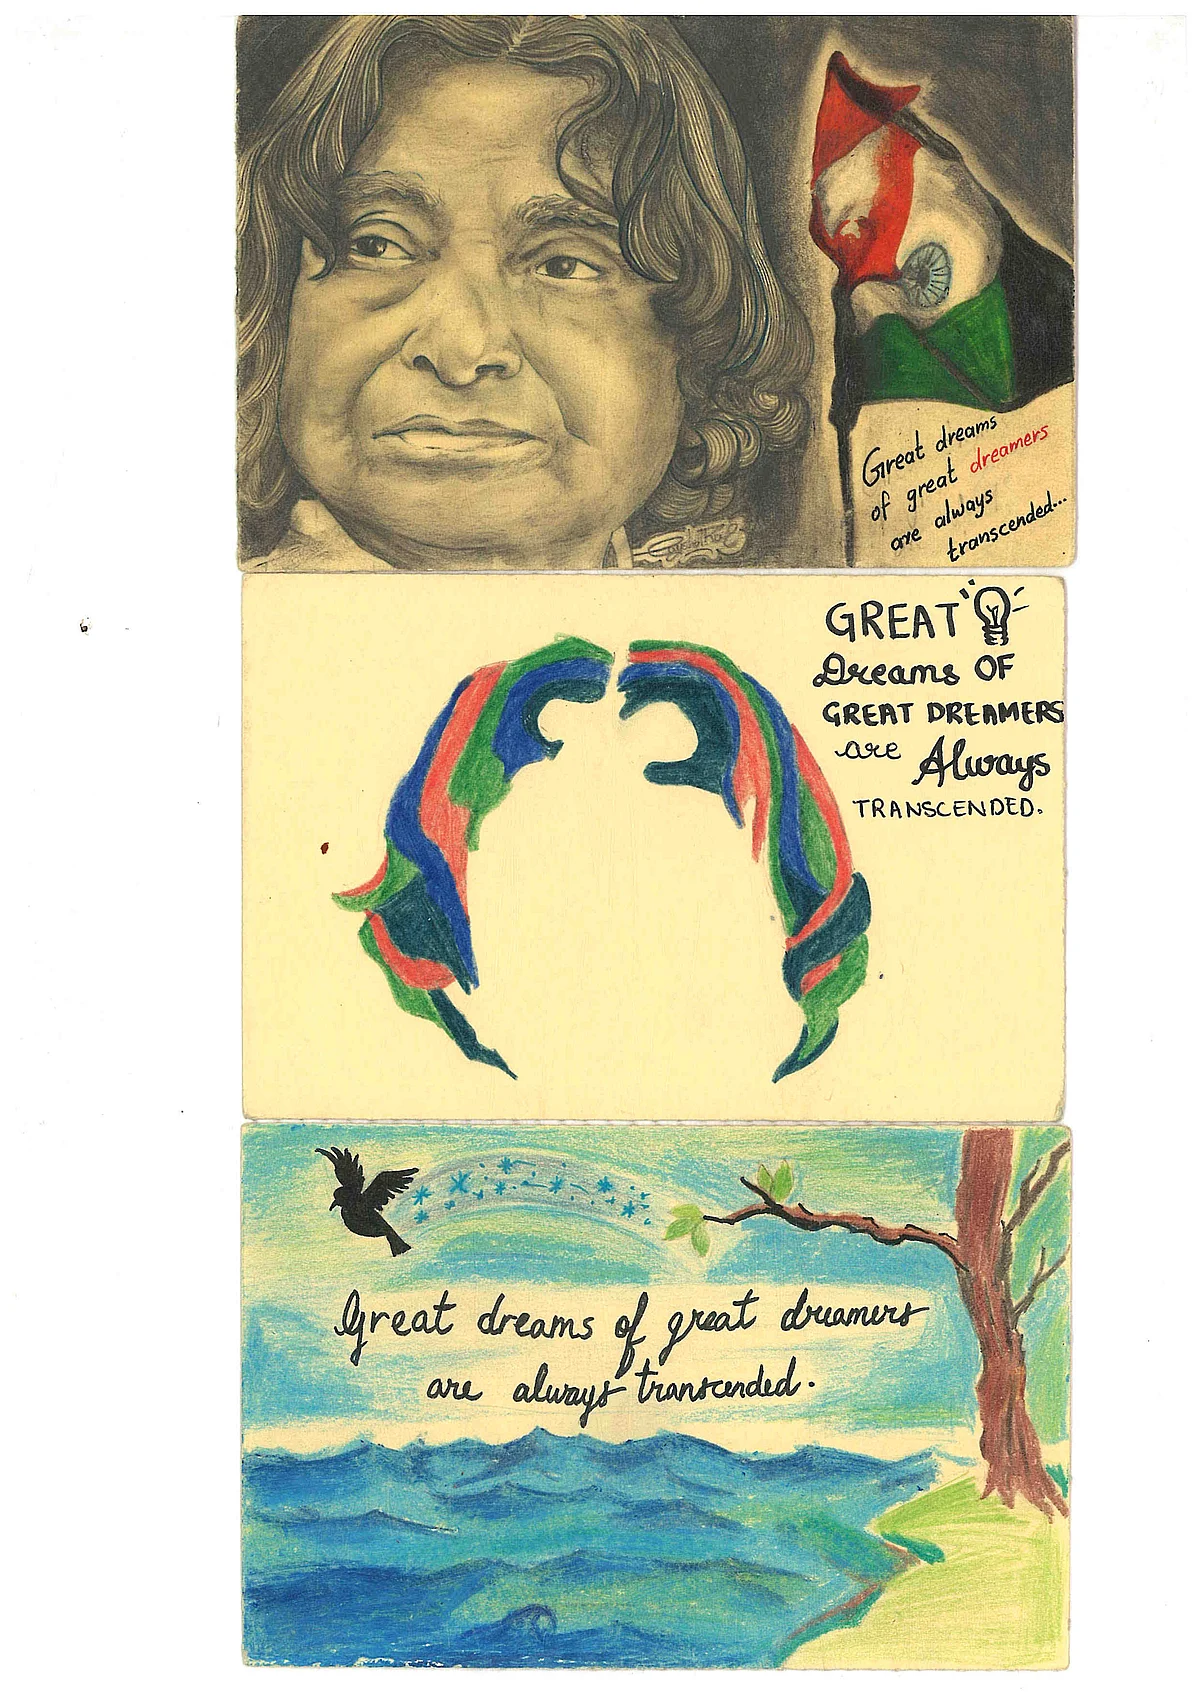 Great dreams
of great dreamers
are always
transcended...
GREAT
Dreams OF
GREAT DREAMERS
are Always
TRANSCENDED.
Great dreams of great dreamers
are always transcended.